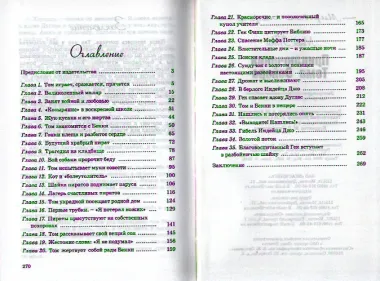 Оглавление
Предисловие от издательства 3
Глава 1. Том играет, сражается, прячется 5
Глава 2. Великолепный маляр 17
Глава 3. Занят войной и любовью 22
Глава 4. «Козыряние» в воскресной школе 31
Глава 5. Жук-кусака и его жертва 43
Глава 6. Том знакомится с Бекки 50
Глава 7. Гонки клеща и разбитое сердце 65
Глава 8. Будущий храбрый пират 72
Глава 9. Трагедия на кладбище 78
Глава 10. Вой собаки пророчит беду 87
Глава 11. Тома испытывают муки совести 95
Глава 12. Кот и «болеутолитель»
Глава 13. Шайка пиратов поднимает паруса
Глава 14. Лагерь счастливых пиратов
Глава 15. Том украдкой посещает родной дом 124
Глава 16. Первые трубки. – «Я потерял ножик» 129
Глава 17. Пираты присутствуют на собственных
похоронах 141
Глава 18. Том рассказывает свой вещий сон 144
Глава 19. Жестокие слова: «Я не подумал» 156
Глава 20. Том жертвует собой ради Бекки 159
270
Глава 21. Красноречие – и позолоченный
купол учителя 165
Глава 22. Гек Финн цитирует Библию 173
Глава 23. Спасение Меффа Поттера 177
Глава 24. Блистательные дни – и ужасные ночи 185
Глава 25. Поиски клада 187
Глава 26. Сундучок с золотом похищен
настоящими разбойниками
Глава 27. Дрожат и выслеживают 205
Глава 28. В берлоге Индейца Джо
Глава 29. Гек спасает вдову Дуглас
Глава 30. Том и Бекки в пещере
Глава 31. Нашлись и потерялись опять
Глава 32. «Выходите! Нашлись!»
Глава 33. Гибель Индейца Джо
Глава 34. Золотой поток
Глава 35. Благовоспитанный Гек вступает
в разбойничью шайку 262
Заключение 269